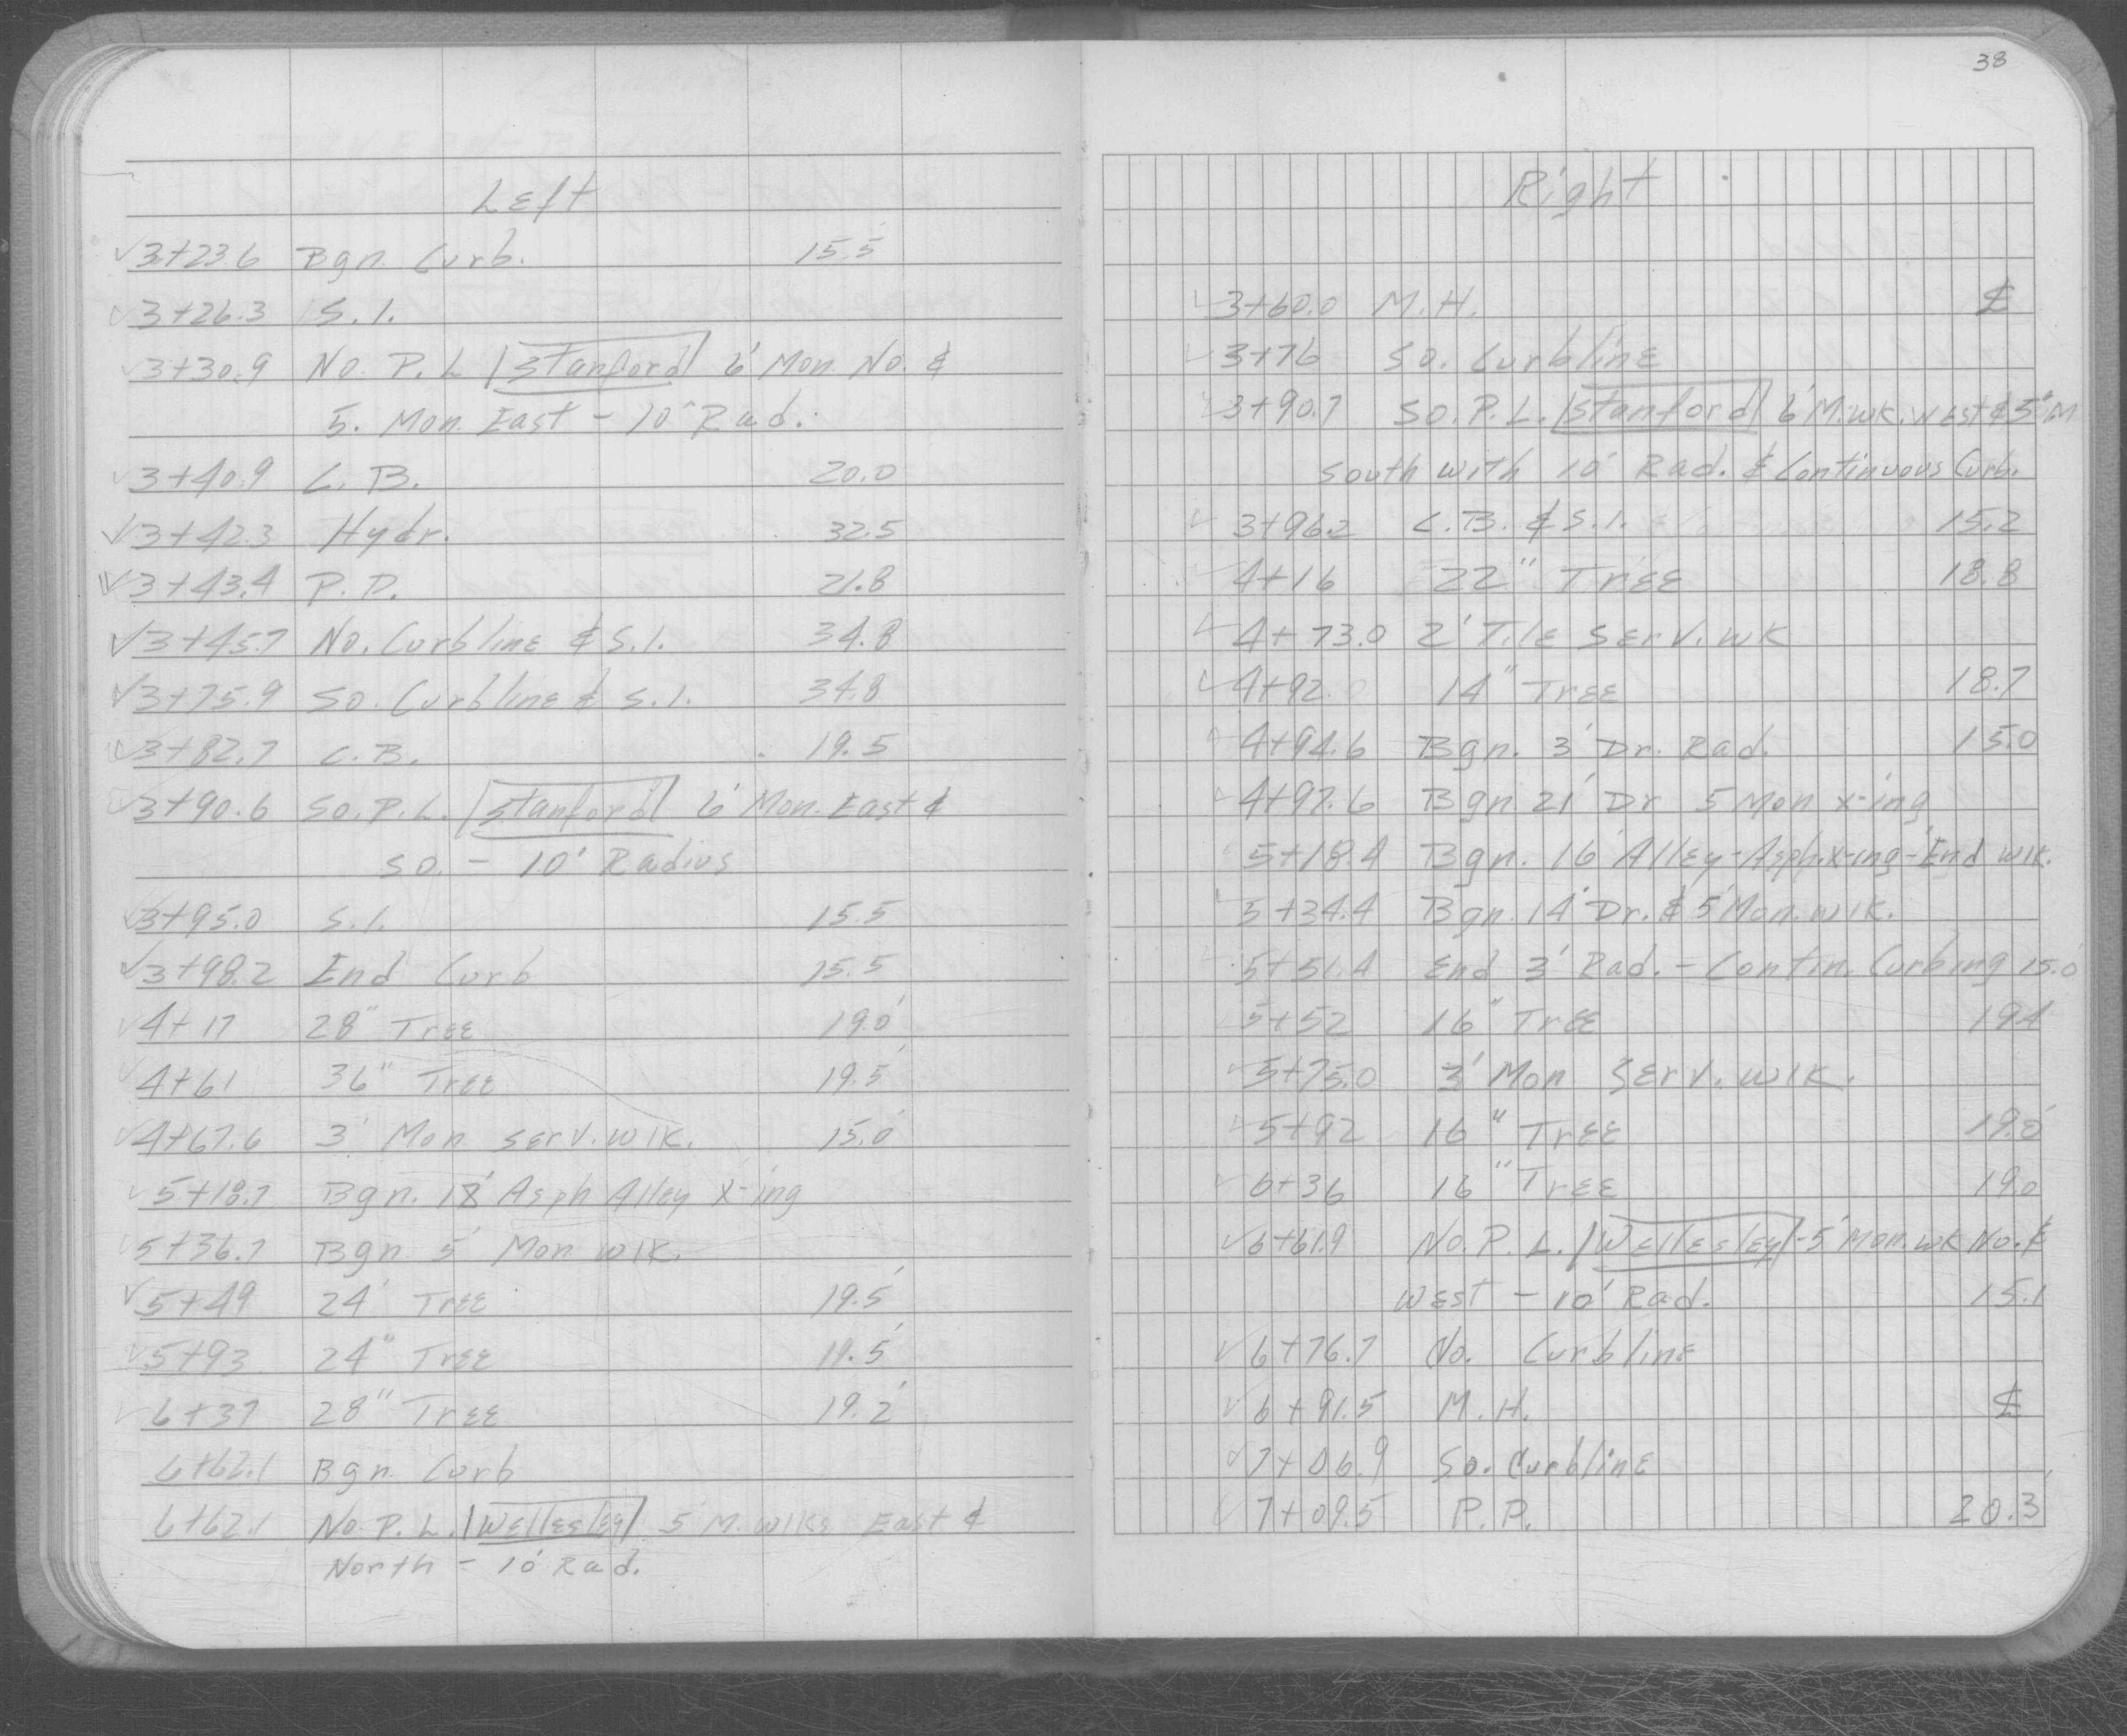 38
Left
✓3+23.6 Bgn. Curb. 15.5'
✓3+26.3 S.I.
✓3+30.9 No. P.L. /Stanford/ 6' Mon. No. &
5. Mon. East - 10' Rad.
✓3+40.9 C.B. 20.0
✓3+42.3 Hydr. 32.5
✓3+43.4 P.P. 21.8
✓3+45.7 No. Curbline & S.I. 34.8
✓3+75.9 So. Curbline & S.I. 34.8
✓3+82.7 C.B. 19.5
✓3+90.6 So. P.L. /Stanford/ 6' Mon. East &
So. - 10' Radius
✓3+95.0 S.I. 15.5
✓3+98.2 End Curb 15.5
✓4+17 28" Tree 19.0'
✓4+61 36" Tree 19.5'
✓4+67.6 3' Mon serv. wlk. 15.0'
✓5+18.7 Bgn. 18' Asph Alley X-ing
✓5+36.7 Bgn 5' Mon wlk.
✓5+49 24' Tree 19.5'
✓5+93 24" Tree 19.5'
✓6+37 28" Tree 19.2'
6+62.1 Bgn. Curb
6+62.1 No. P.L. /Wellesley/ 5' M. wlks East &
North - 10' Rad.
Right
✓3+60.0 M.H. ℄
✓3+76 So. Curbline
✓3+90.7 So. P.L. /Stanford/ 6' M. wk. West & 5' M
South with 10' Rad. & Continuous Curb.
✓3+96.2 C.B. & S.I. 15.2
✓4+16 22" Tree 18.8
✓4+73.0 2' Tile Serv. wk
✓4+92. 14" Tree 18.7
✓4+94.6 Bgn. 3' Dr. Rad. 15.0
✓4+97.6 Bgn 21' Dr 5 Mon x-ing
✓5+18.4 Bgn. 16' Alley-Asph. x-ing-End wlk.
✓5+34.4 Bgn. 14' Dr. & 5' Mon. wlk.
✓5+51.4 End 3' Rad. - Contin. Curbing 15.0'
✓5+52 16" Tree 19.4
✓5+75.0 3' Mon Serv. wlk.
✓5+92 16" Tree 19.0'
✓6+36 16" Tree 19.0
✓6+61.9 No. P.L. /Wellesley/-5' Mon. wk No. &
West - 10' Rad. 15.1
✓6+76.7 No. Curbline
✓6+91.5 M.H. ℄
✓7+06.9 So. Curbline
✓7+09.5 P.P. 20.3'